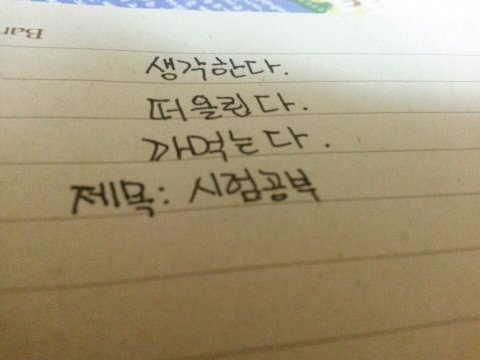 Bar
생각한다.
떠올린다.
까먹는다.
제목: 시험공부